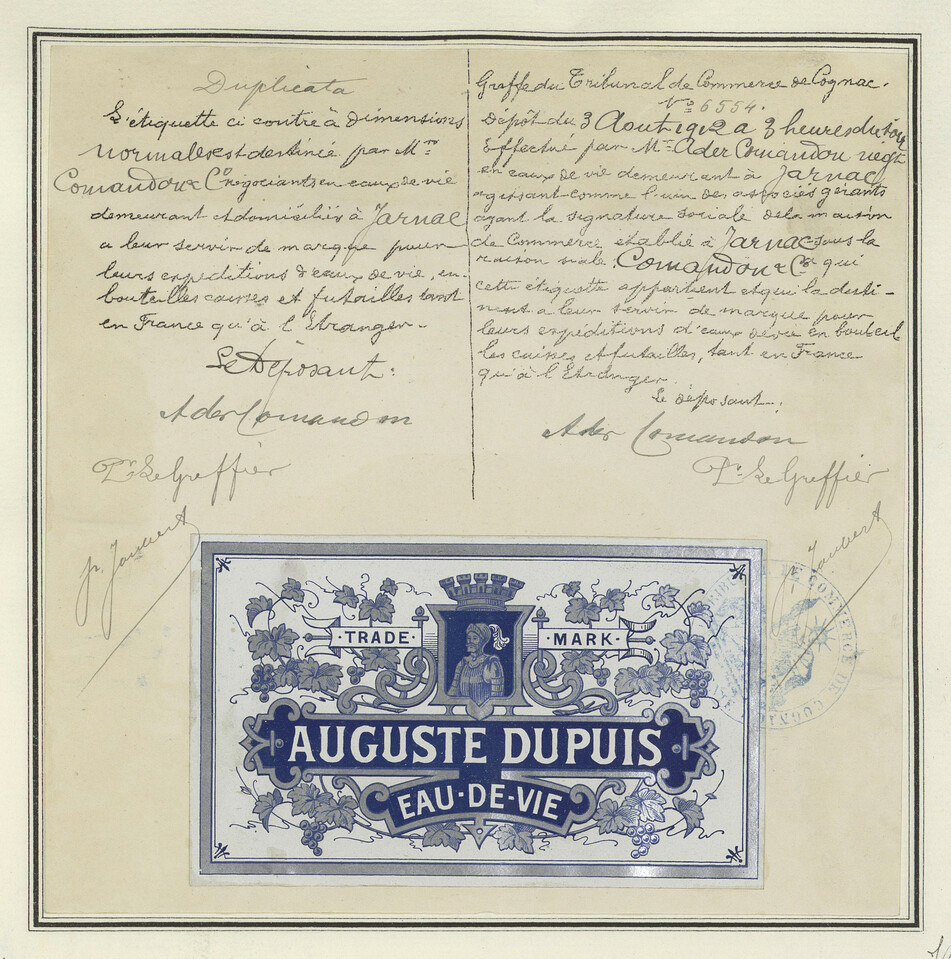 Duplicata
L'étiquette ci contre à dimensions
normales est destinée par Mrs
Comandon & Co négociants en eaux de vie
demeurant et domiciliés à Jarnac
a leur servir de marque pour
leurs expéditions d'eaux de vie, en
bouteilles caisses et futailles tant
en France qu'à l'Etranger.
Le Déposant:
Ader Comandon
Pr Le Greffier
Jr. Jaubert
Greffe du Tribunal de Commerce de Cognac.
No 6554.
Dépôt du 3 Aout 1912 a 3 heures du soir
Effectué par Mr Ader Comandon negt
en eaux de vie demeurant à Jarnac
agissant comme l'un des associés gérants
ayant la signature sociale de la maison
de Commerce établie à Jarnac sous la
raison siale, Comandon & Cie qui
cette étiquette appartient et qui la desti-
nent a leur servir de marque pour
leurs expéditions d'eaux de vie en bouteil
les caisses et futailles, tant en France
qu'à l'Etranger.
Le déposant:
Ader Comandon
Pr Le Greffier
Jaubert
TRADE MARK
AUGUSTE DUPUIS
EAU-DE-VIE
DE COMMERCE DE COGNAC